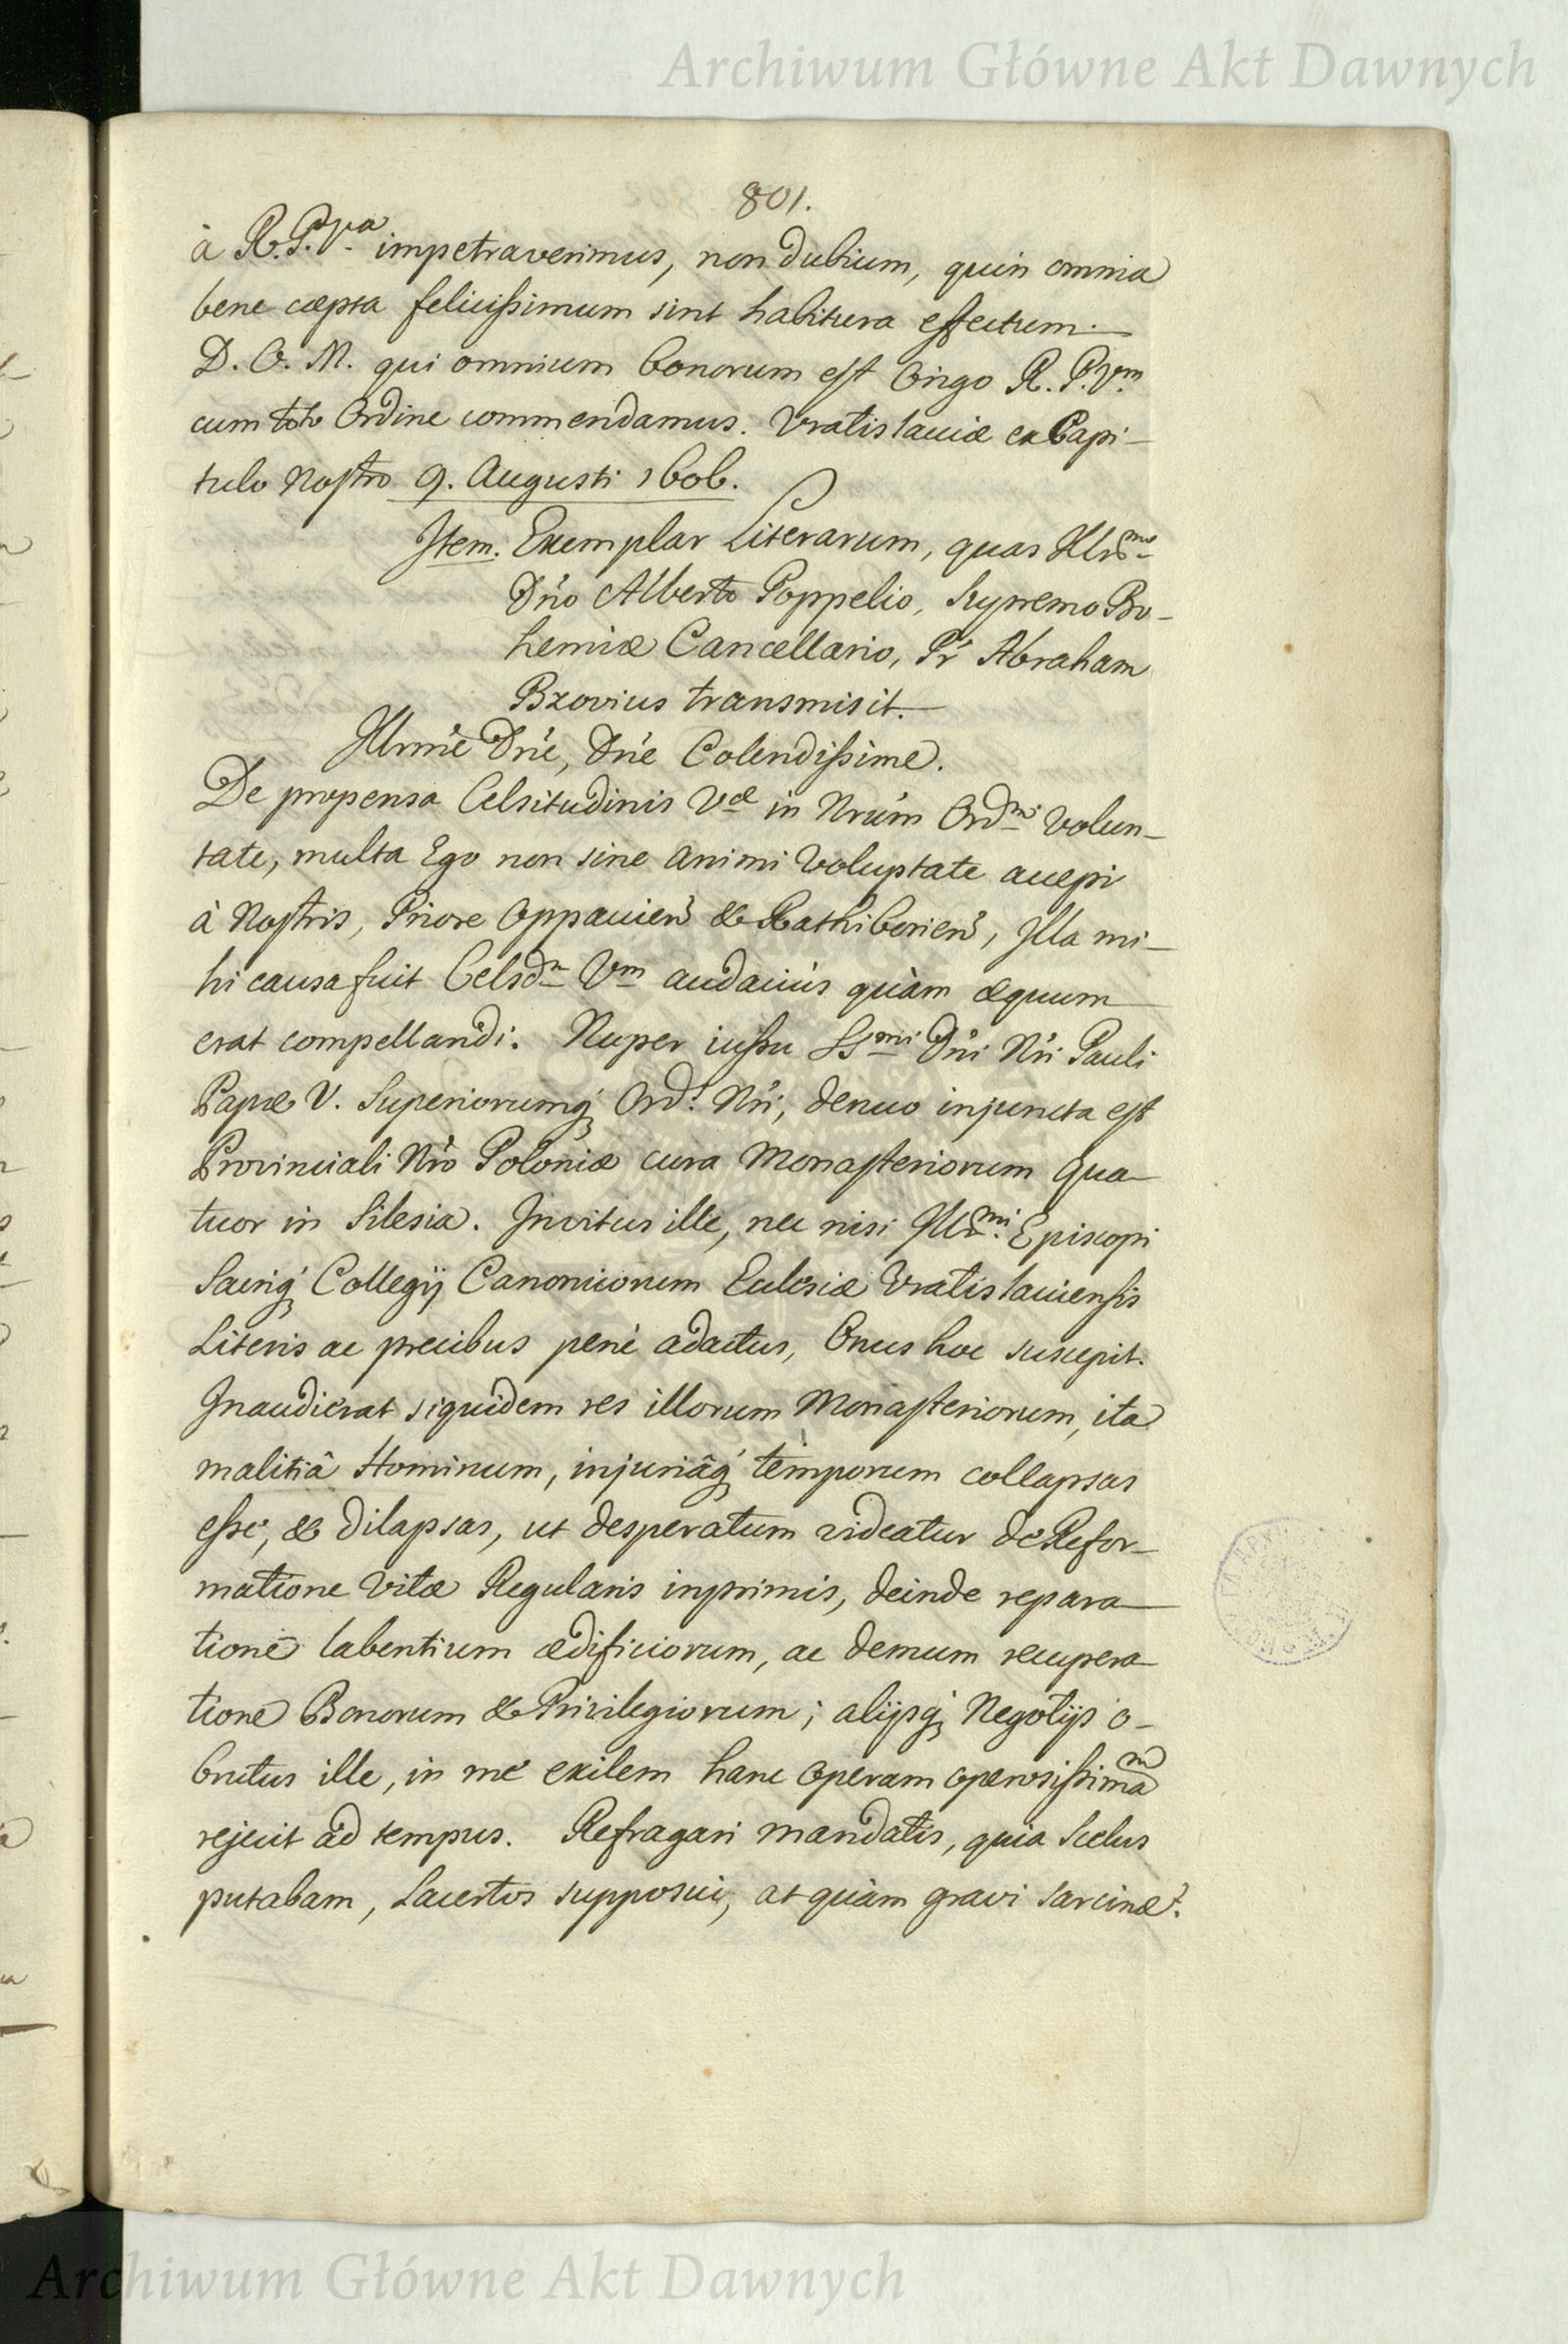 Archiwum Główne Akt Dawnych
801.
à R. P. Vra impetraverimus, non dubium, quin omnia
bene cæpta felicissimum sint habitura effectum.
D. O. M. qui omnium bonorum est Origo R. P. Vm
cum toto Ordine commendamus. Vratislaviæ ex Capi-
tulo Nostro 9. Augusti 1606.
Item. Exemplar Literarum, quas Illmo
Dno Alberto Poppelio, Supremo Bo-
hemiæ Cancellario, Pr Abraham
Bzovius transmisit.
Illmē Dn̄e, Dn̄e Colendissime.
De propensa Celsitudinis Væ in Nrum Ordm volun-
tate, multa Ego non sine animi voluptate accepi
à Nostris, Priore Oppavien & Rathiborien, Illa mi-
hi causa fuit Celsdn Vm audaciùs quàm æquum
erat compellandi. Nuper iussu SSmi Dni Nri Pauli
Papæ V. Superiorumq Ord. Nri, denuo injuncta est
Provinciali Nro Poloniæ cura Monasteriorum qua-
tuor in Silesia. Invitus ille, nec nisi Illmi Episcopi
Sacriq Collegij Canonicorum Ecclesiæ Vratislaviensis
Literis ac precibus penè adactus, Onus hoc suscepit.
Inaudierat siquidem res illorum Monasteriorum, ita
malitiâ Hominum, injuriâq temporum collapsas
esse, & dilapsas, ut desperatum videatur de Refor-
matione vitæ Regularis inprimis, deinde repara-
tione labentium ædificiorum, ac demum recupera-
tione Bonorum & Privilegiorum; alijsq Negotijs o-
brutus ille, in me exilem hanc operam operosissimam
rejecit ad tempus. Refragari mandatis, quia Scelus
putabam, Lacertos supposui, at quàm gravi sarcinæ?
Archiwum Główne Akt Dawnych